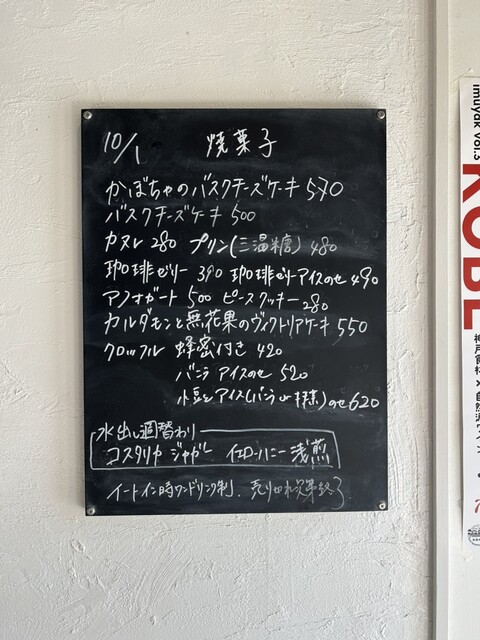 10/1 焼菓子
かぼちゃのバスクチーズケーキ 570
バスクチーズケーキ 500
カヌレ 280 プリン(三温糖) 480
珈琲ゼリー 390 珈琲ゼリーアイスのせ 490
アフォガート 500 ピースクッキー 280
カルダモンと無花果のヴィクトリアケーキ 550
クロッフル 蜂蜜付き 420
バニラ アイスのせ 520
小豆とアイス(バニラ or 抹茶)のせ 620
水出し週替わり
コスタリカ ジャガレ イエローハニー 浅煎
イートイン時ワンドリンク制. 売り切れ次第終了
imuyak Vol.3
KOBE
神戸食材×自然派ワイン